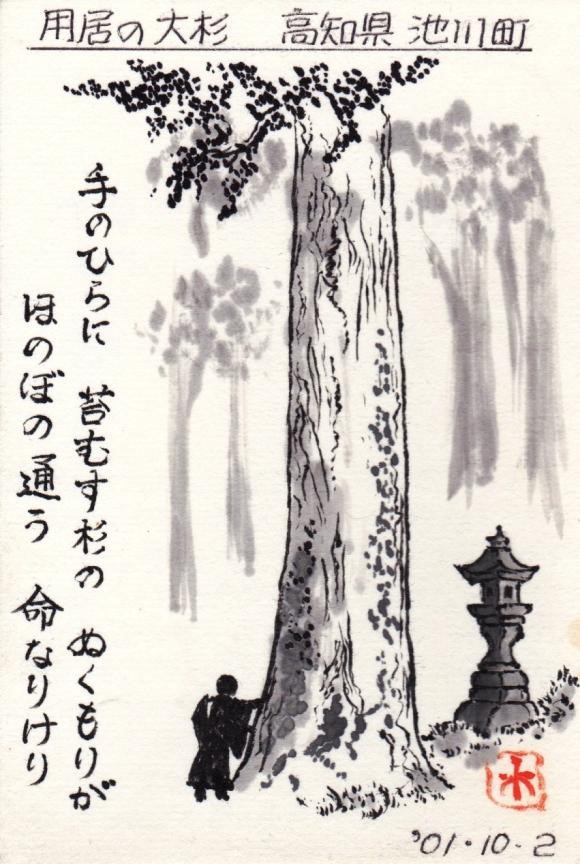 用居の大杉　高知県 池川町
手のひらに　苔むす杉の　ぬくもりが
ほのぼの通う　命なりけり
木
'01・10・2